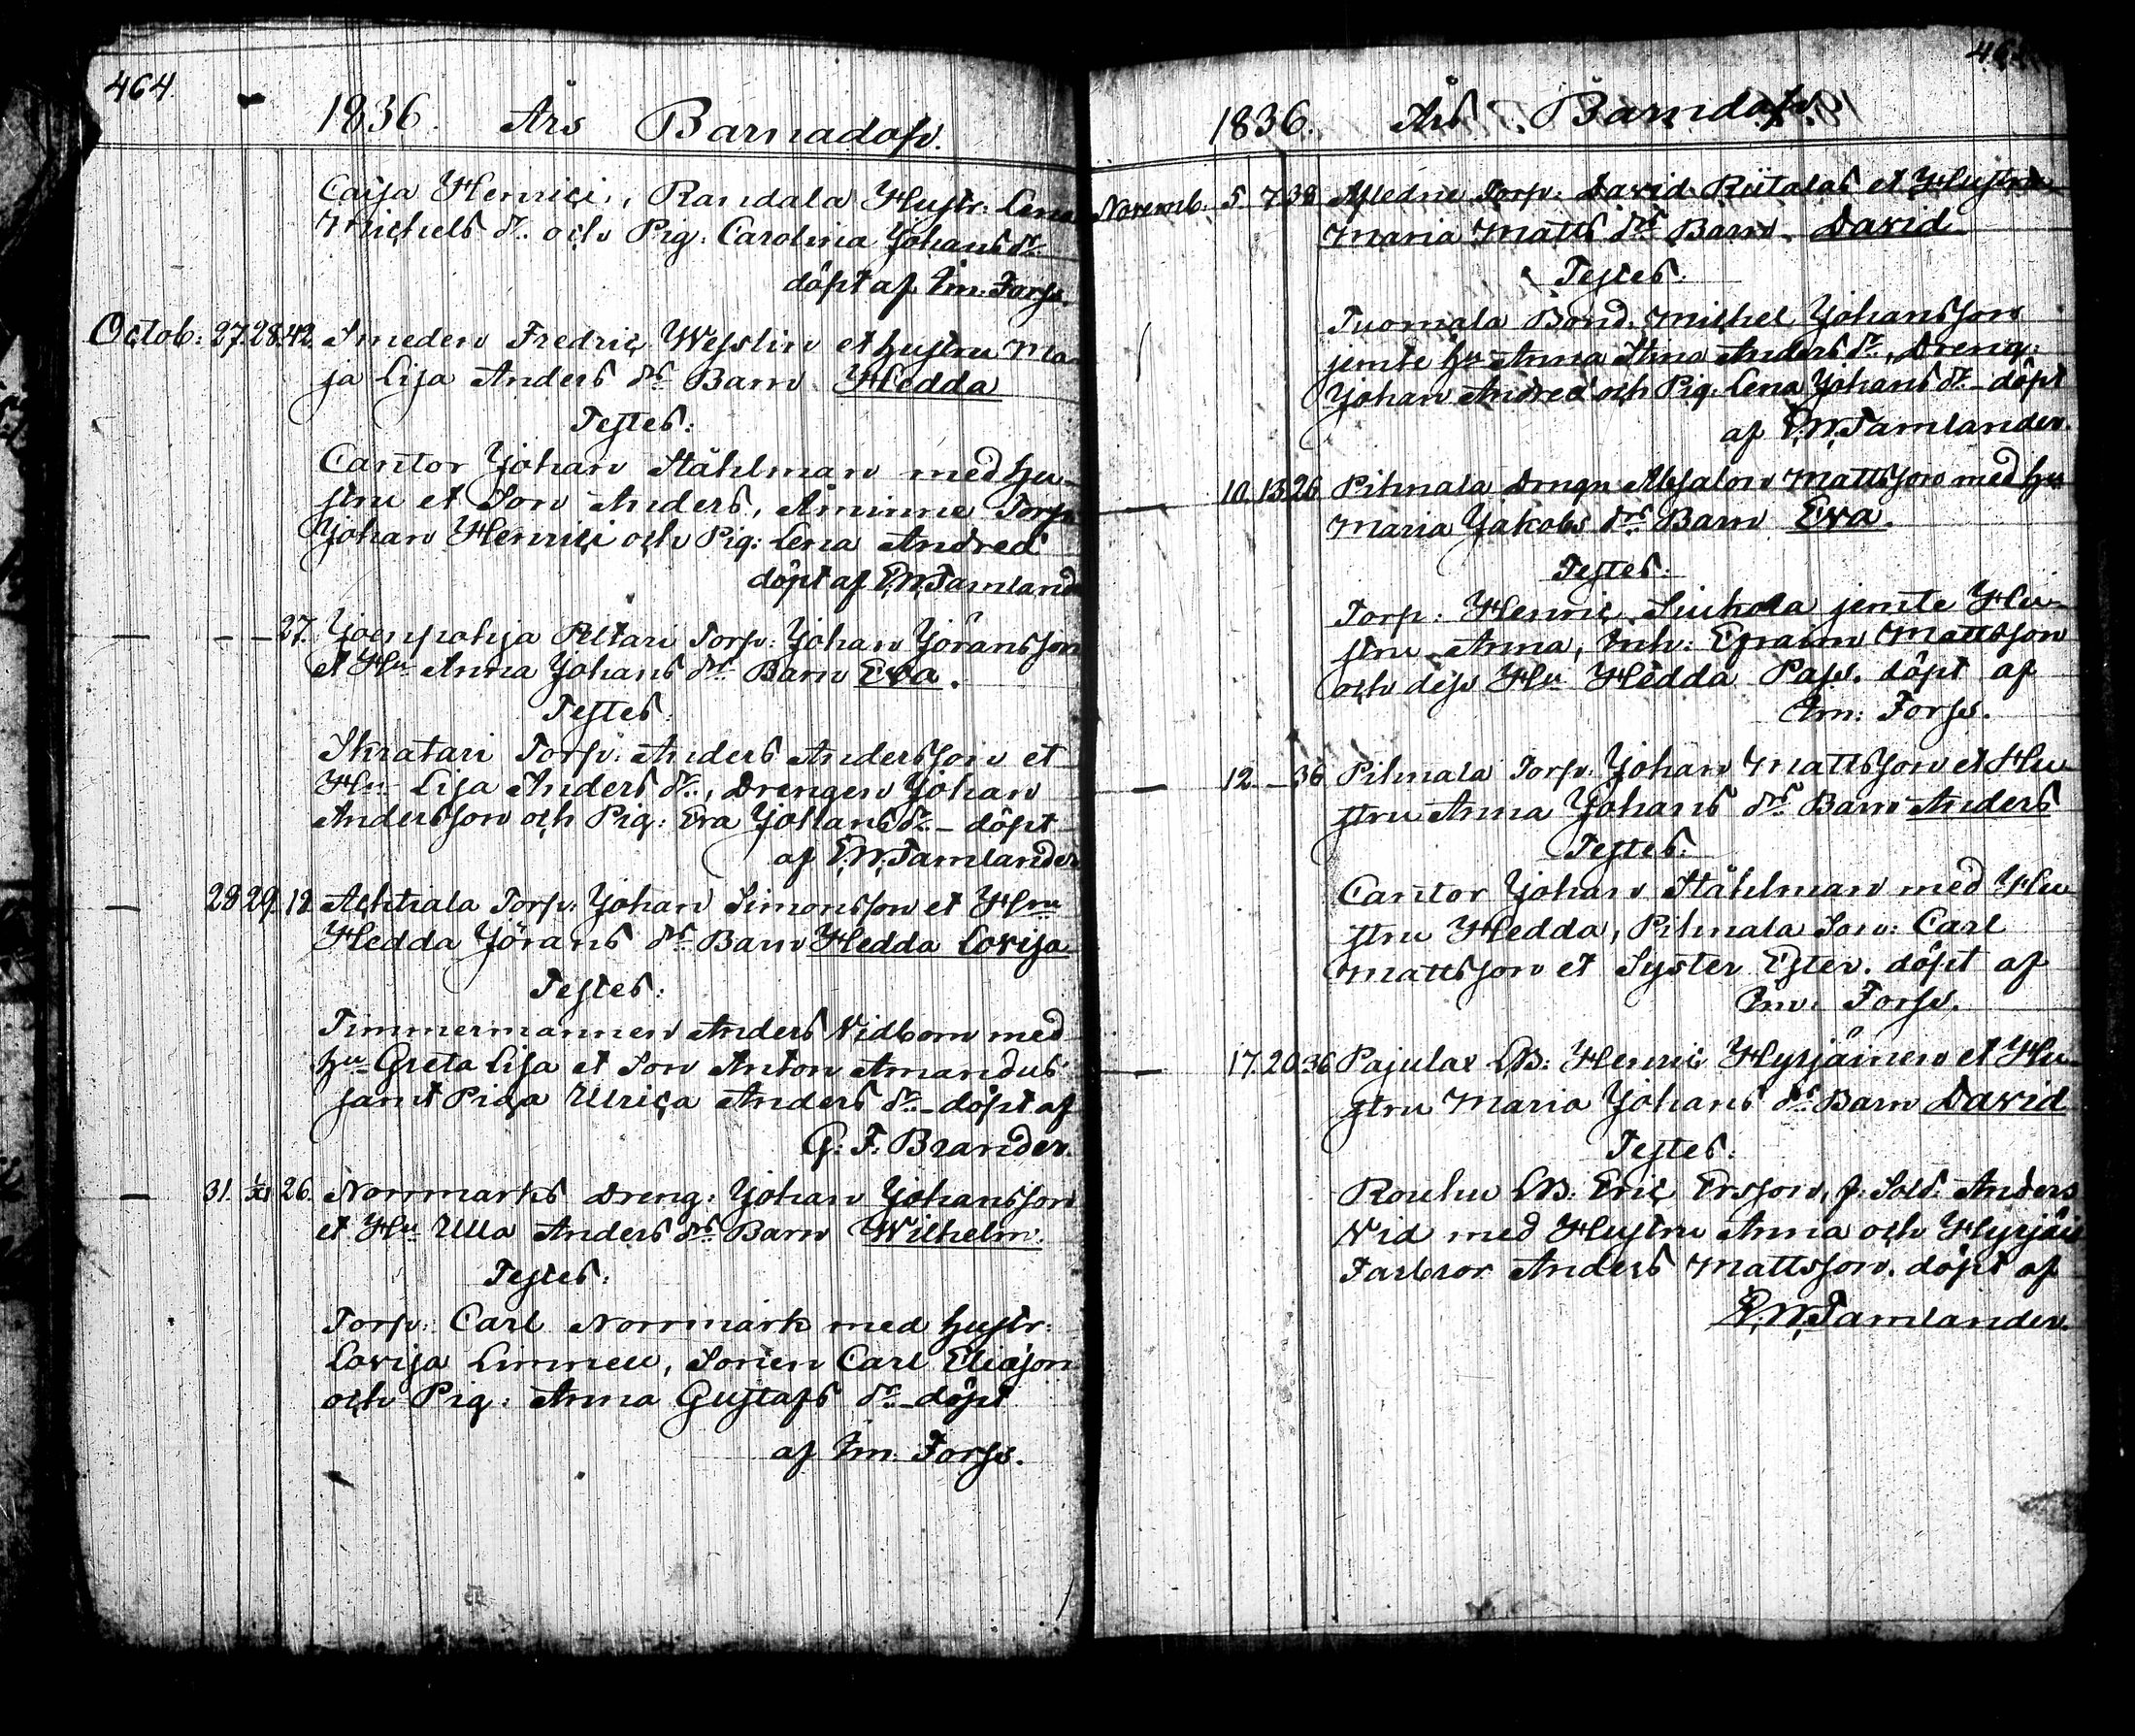 464.
1836. Års Barnadop.
Caisa Henrici, Randala Hustr: Lena
Michels dr. och Pig: Carolina Johans dr.
döpt af Im: Forss.
Octob: 27. 28. 42. Smeden Fredric Wesslin et hustru Ma-
ja Lisa Anders drs Barn Hedda
Testes:
Cantor Johan Ståhlman med hu-
stru et Son Anders, Åminne Torp:
Johan Henrici och Pig: Lena Andreæ
döpt af E.W. Tamland
— — — 27. Joenpohja Peltari Torp: Johan Jöransson
et Hu Anna Johans drs Barn Eva.
Testes:
Skratari Torp: Anders Andersson et
Hu Lisa Anders dr., Drengen Johan
Andersson och Pig: Eva Johans dr. – döpt
af E.W. Tamlander
— 28 29. 18 Achtiala Torp: Johan Simonsson et Hru
Hedda Jörans drs Barn Hedda Lovisa
Testes:
Timmermannen Anders Vidbom med
hu Greta Lisa et Son Anton Amandus
samt Piga Ulrica Anders dr. – döpt af
G: F: Brander.
— 31. 1/XI 26. Norrmarks Dreng: Johan Johansson
et Hu Ulla Anders drs Barn Wilhelm.
Testes:
Torp: Carl Norrmark med hustr:
Lovisa Limnell, Sonen Carl Eliasson
och Pig: Anna Gustafs dr – döpt
af Im: Forss.
1836. Års Barndop.
Novemb: 5. 7. 38 Torp: David Riitalas et Hustru
Maria Matts drs Barn David
Testes:
Tuomala Bond. Michel Johansson
jemte hu Anna Stina Anders dr., Dreng:
Johan Andreæ och Pig: Lena Johans dr. – döpt
af E.W. Tamlander.
— 10. 13. 26 Pihnala Drngn Absalon Mattsson med hu
Maria Jakobs drs Barn Eva.
Testes:
Torp: Henric Siukola jemte Hu-
stru Anna, Inh: Epraim Mattsson
och dess Hu Hedda Pass. döpt af
Im: Forss.
— 12. – 36 Pihnala Torp: Johan Mattsson et Hu
stru Anna Johans drs Barn Anders
Testes:
Cantor Johan Ståhlman med Hu
stru Hedda, Pihnala Son: Carl
Mattsson et Syster Ester. döpt af
Im: Forss.
— 17. 20. 36 Pajulax LB: Henric Hyrjäinen et Hu-
stru Maria Johans drs Barn David
Testes:
Rouhu LB: Eric Ersson, f. Sold: Anders
Vid med Hustru Anna och Hyrjäi
Farbror Anders Mattsson. döpt af
E.W. Tamlander.